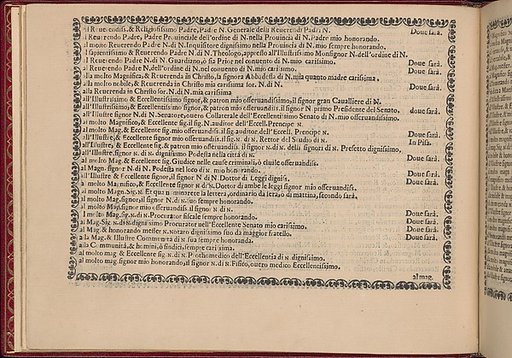 Al Reuerendiss. & Religiosissimo Padre, Padre N. Generale delli Reuerendi Padri N. Doue sarà.
Al Reuerendo Padre, Padre Prouinciale dell'ordine di N. nella Prouincia di N. Padre mio honorando.
Al molto Reuerendo Padre N. di N. Inquisitore dignissimo nella Prouincia di N. mio sempre honorando.
Al sapientissimo & Reuerendo Padre N. di N. Theologo, appresso all'Illustrissimo Monsignor N. dell'ordine di N.
Al Reuerendo Padre N. di N. Guardiano, ò sia Prior nel conuento di N. mio carissimo. Doue sarà.
Al Reuerendo Padre N. dell'ordine di N. nel conuento di N. mio carissimo. Doue sarà.
Alla molto Magnifica, & Reuerenda in Christo, la signora Abbadessa di N. mia quanto madre carissima.
Alla molto nobile, & Reuerenda in Christo mia carissima sor. N. di N. Doue sarà.
Alla Reuerenda in Christo sor. N. di N. mia carissima Doue sarà.
all'Illustrissimo & Eccellentissimo signor, & patron mio offeruandissimo, il signor gran Cauailiere di N.
all'Illustrissimo, & Eccellentissimo signor, & patron mio offeruandiss. il signor N. primo Presidente del Senato.
all'Illustre signor N. di N. Senatore, ouero Collaterale dell'Eccellentissimo Senato di N. mio offeruandissimo. doue sarà.
al molto Magnifico, & Eccellente sig. il sig. N. auditor dell'Eccell. Prencipe N.
al molto Mag. & Eccellente sig. mio offeruandiss. il sig. auditor dell'Eccell. Prencipe N. Doue sarà.
all'Illustre, & Eccellente signor mio offeruandiss. il sig. N. di N. Rettor del Studio di N. In Pisa.
all'Illustre, & Eccellente sig. & patron mio offeruandiss. il signor N. di N. delli signori di N. Prefetto dignissimo.
all'Illustre, signor N. di N. dignissimo Podestà nella città di N. Doue sarà.
al molto Mag. & Eccellente sig. Giudice nelle cause criminali, ò ciuile offeruandiss. Doue sarà.
al Magn. signor N. di N. Podestà nel loco di N. mio honorando.
all'Illustre & Eccellente signor, il signor N. di N. Dottor di Leggi digniss. Doue sarà.
al molto Magnifico, & Eccellente signor N. di N. Dottor di ambe le leggi signor mio offeruandiss. Doue sarà.
al molto Magn. Sig. N.
al molto Mag. signor, il signor N. di N. mio sempre honorando.
al molto Mag. signor mio offeruandiss. al signor N. di N.
al molto Mag. sig. N. di N. Procurator fiscale sempre honorando. Doue sarà.
al Mag. Sig. N. di N. dignissimo Procurator nell'Eccellente Senato mio carissimo. Doue sarà.
al Mag. & honorando messer N. Notaro dignissimo suo da maggior fratello. Doue sarà.
alla Mag. & Illustre Communità di N. sua sempre honoranda. Doue sarà.
alla Communità, & homini, & sindici, sempre carissima.
al molto mag. & Eccellente sig. N. di N. Prothomedico dell'Eccellentia di N. dignissimo.
al molto mag. signor mio honorando, il signor N. di N. Fisico, ouero medico Eccellentissimo.
al mag.